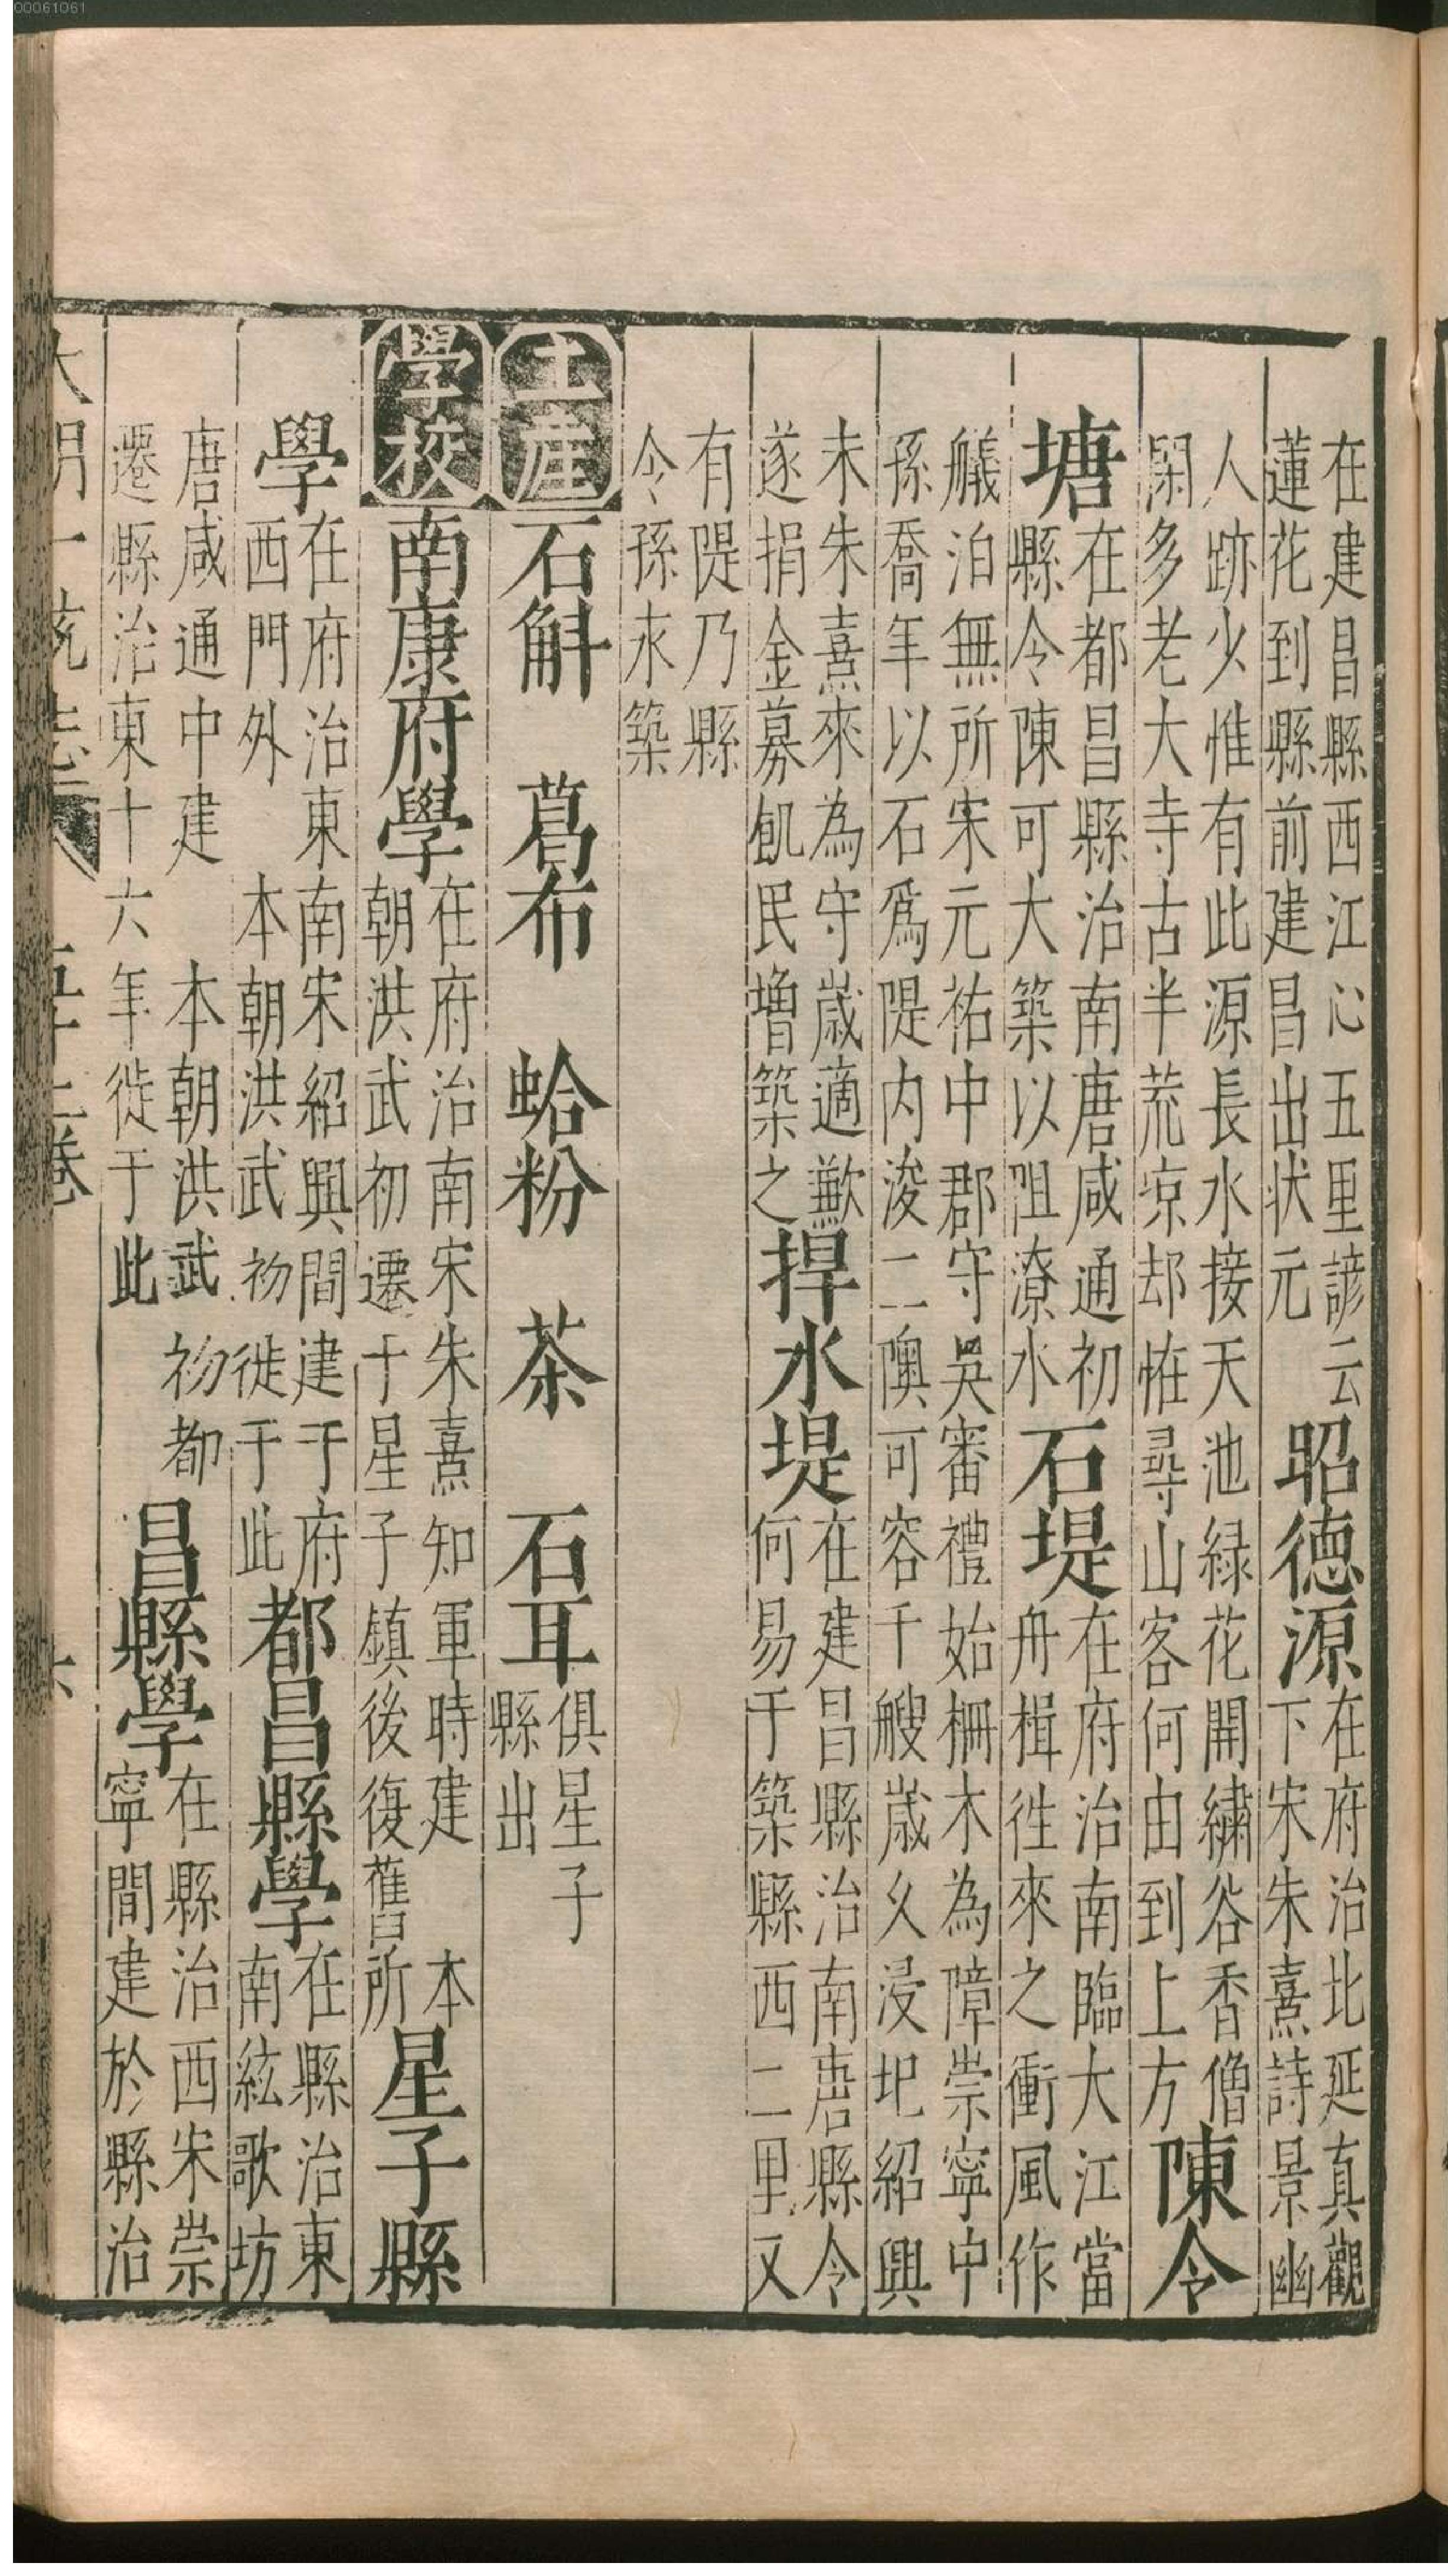 00061061
在建昌縣西江心五里諺云
蓮花到縣前建昌出狀元
昭德源
在府治北延真觀
下宋朱熹詩景幽
人跡少惟有此源長水接天池緑花開繡谷香僧
閑多老大寺古半荒凉却恠尋山客何由到上方
陳令
塘
在都昌縣治南唐咸通初
縣令陳可大築以阻潦水
石堤
在府治南臨大江當
舟楫徃來之衝風作
艤泊無所宋元祐中郡守吳審禮始柵木為障崇寧中
孫喬年以石爲隄内浚二隩可容千艘歲久浸圯紹興
未朱熹來為守歲適歉
遂捐金募飢民增築之
捍水堤
在建昌縣治南唐縣令
何易于築縣西二里又
有隄乃縣
令孫永築
土產
石斛 葛布 蛤粉 茶 石耳
俱星子
縣出
學校
南康府學
在府治南宋朱熹知軍時建 本
朝洪武初遷十星子鎮後復舊所
星子縣
學
在府治東南宋紹興間建于府
西門外 本朝洪武初徙于此
都昌縣學
在縣治東
南絃歌坊
唐咸通中建 本朝洪武初都
遷縣治東十六年徙于此
昌縣學
在縣治西宋崇
寧間建於縣治
大明一統志 五十二卷 六